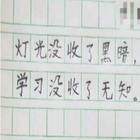 灯光没收了黑暗，
学习没收了无知。